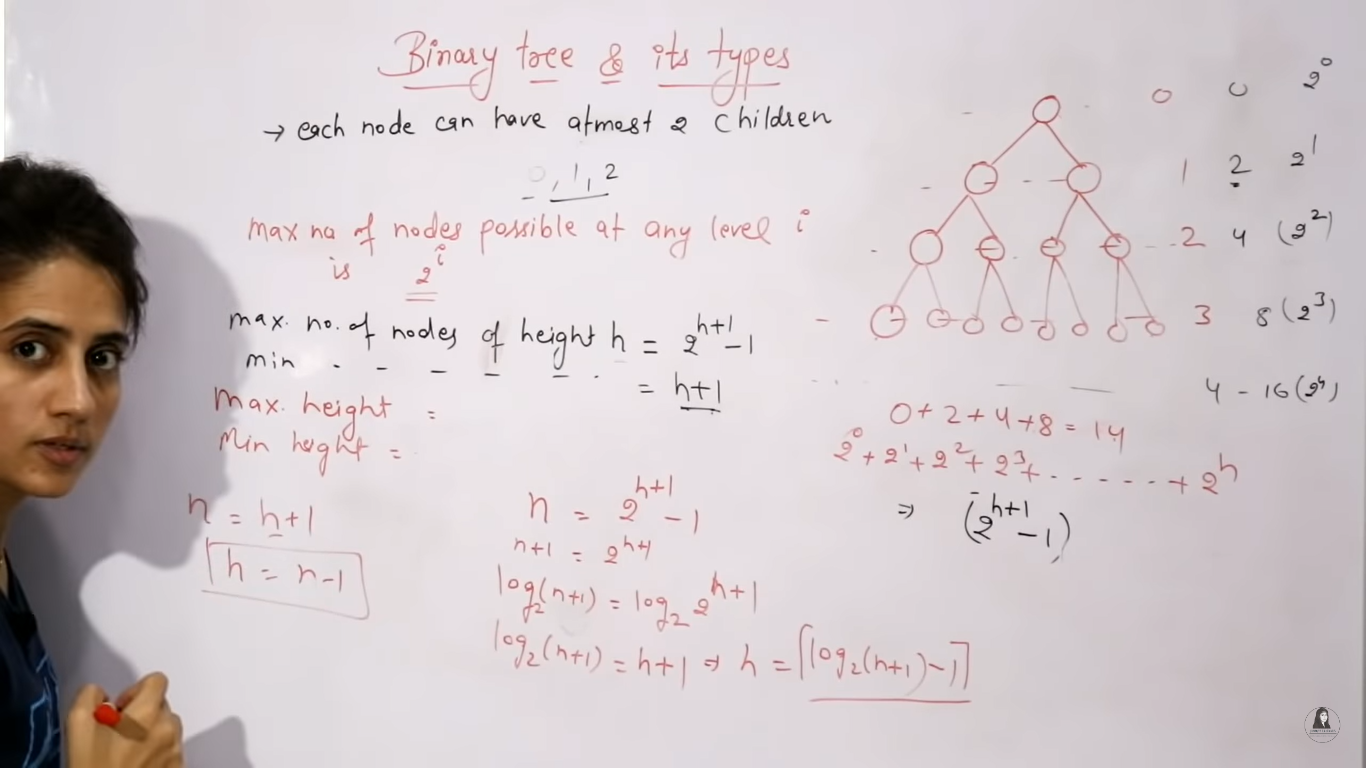 Binary tree & its types
→ each node can have atmost 2 children
0, 1, 2
max no of nodes possible at any level i
is 2^i
max. no. of nodes of height h = 2^{h+1} - 1
min - - - - - - = h+1
max. height =
Min height =
n = h+1
h = n-1
n = 2^{h+1} - 1
n+1 = 2^{h+1}
log₂(n+1) = log₂ 2^{h+1}
log₂(n+1) = h+1 → h = ⌈log₂(n+1)-1⌉
0 0 2^0
1 2 2^1
2 4 (2^2)
3 8 (2^3)
4 - 16 (2^4)
0+2+4+8 = 14
2^0 + 2^1 + 2^2 + 2^3 + ...... + 2^h
⇒ (2^{h+1} - 1)